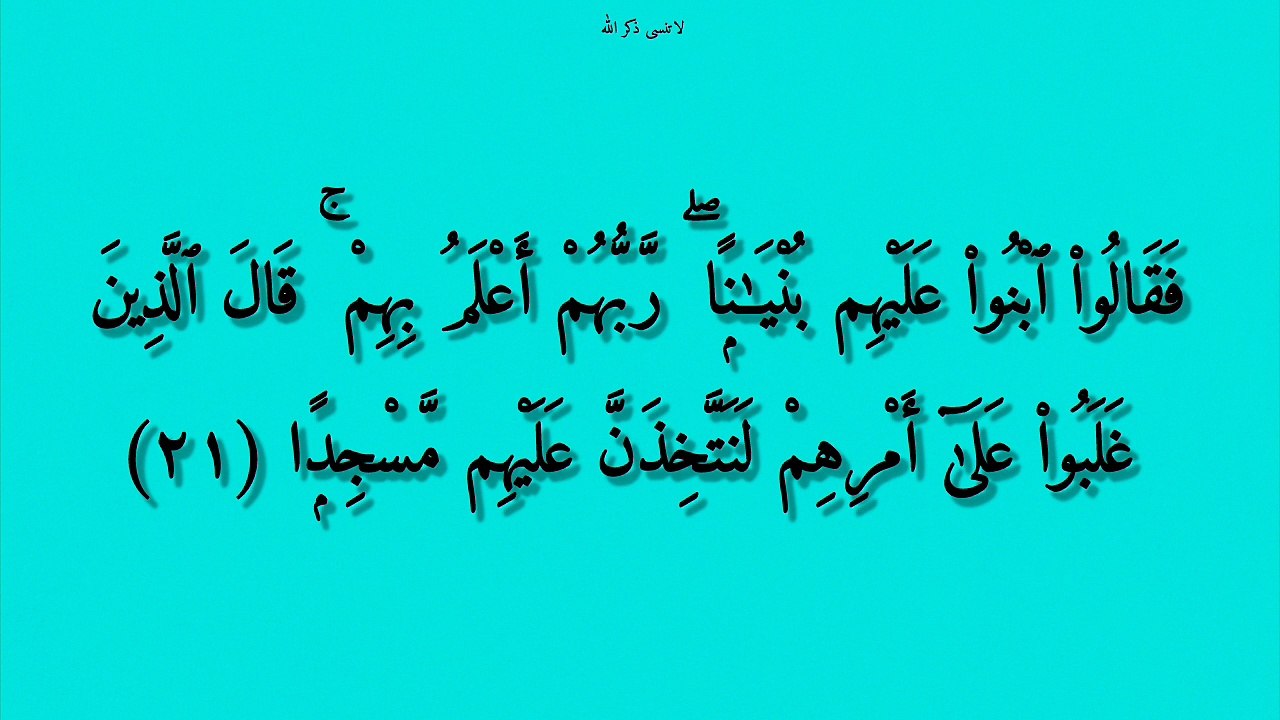 لا تنسى ذكر الله
فَقَالُوا۟ ٱبْنُوا۟ عَلَيْهِم بُنْيَـٰنًۭا ۖ رَّبُّهُمْ أَعْلَمُ بِهِمْ ۚ قَالَ ٱلَّذِينَ
غَلَبُوا۟ عَلَىٰٓ أَمْرِهِمْ لَنَتَّخِذَنَّ عَلَيْهِم مَّسْجِدًۭا (٢١)